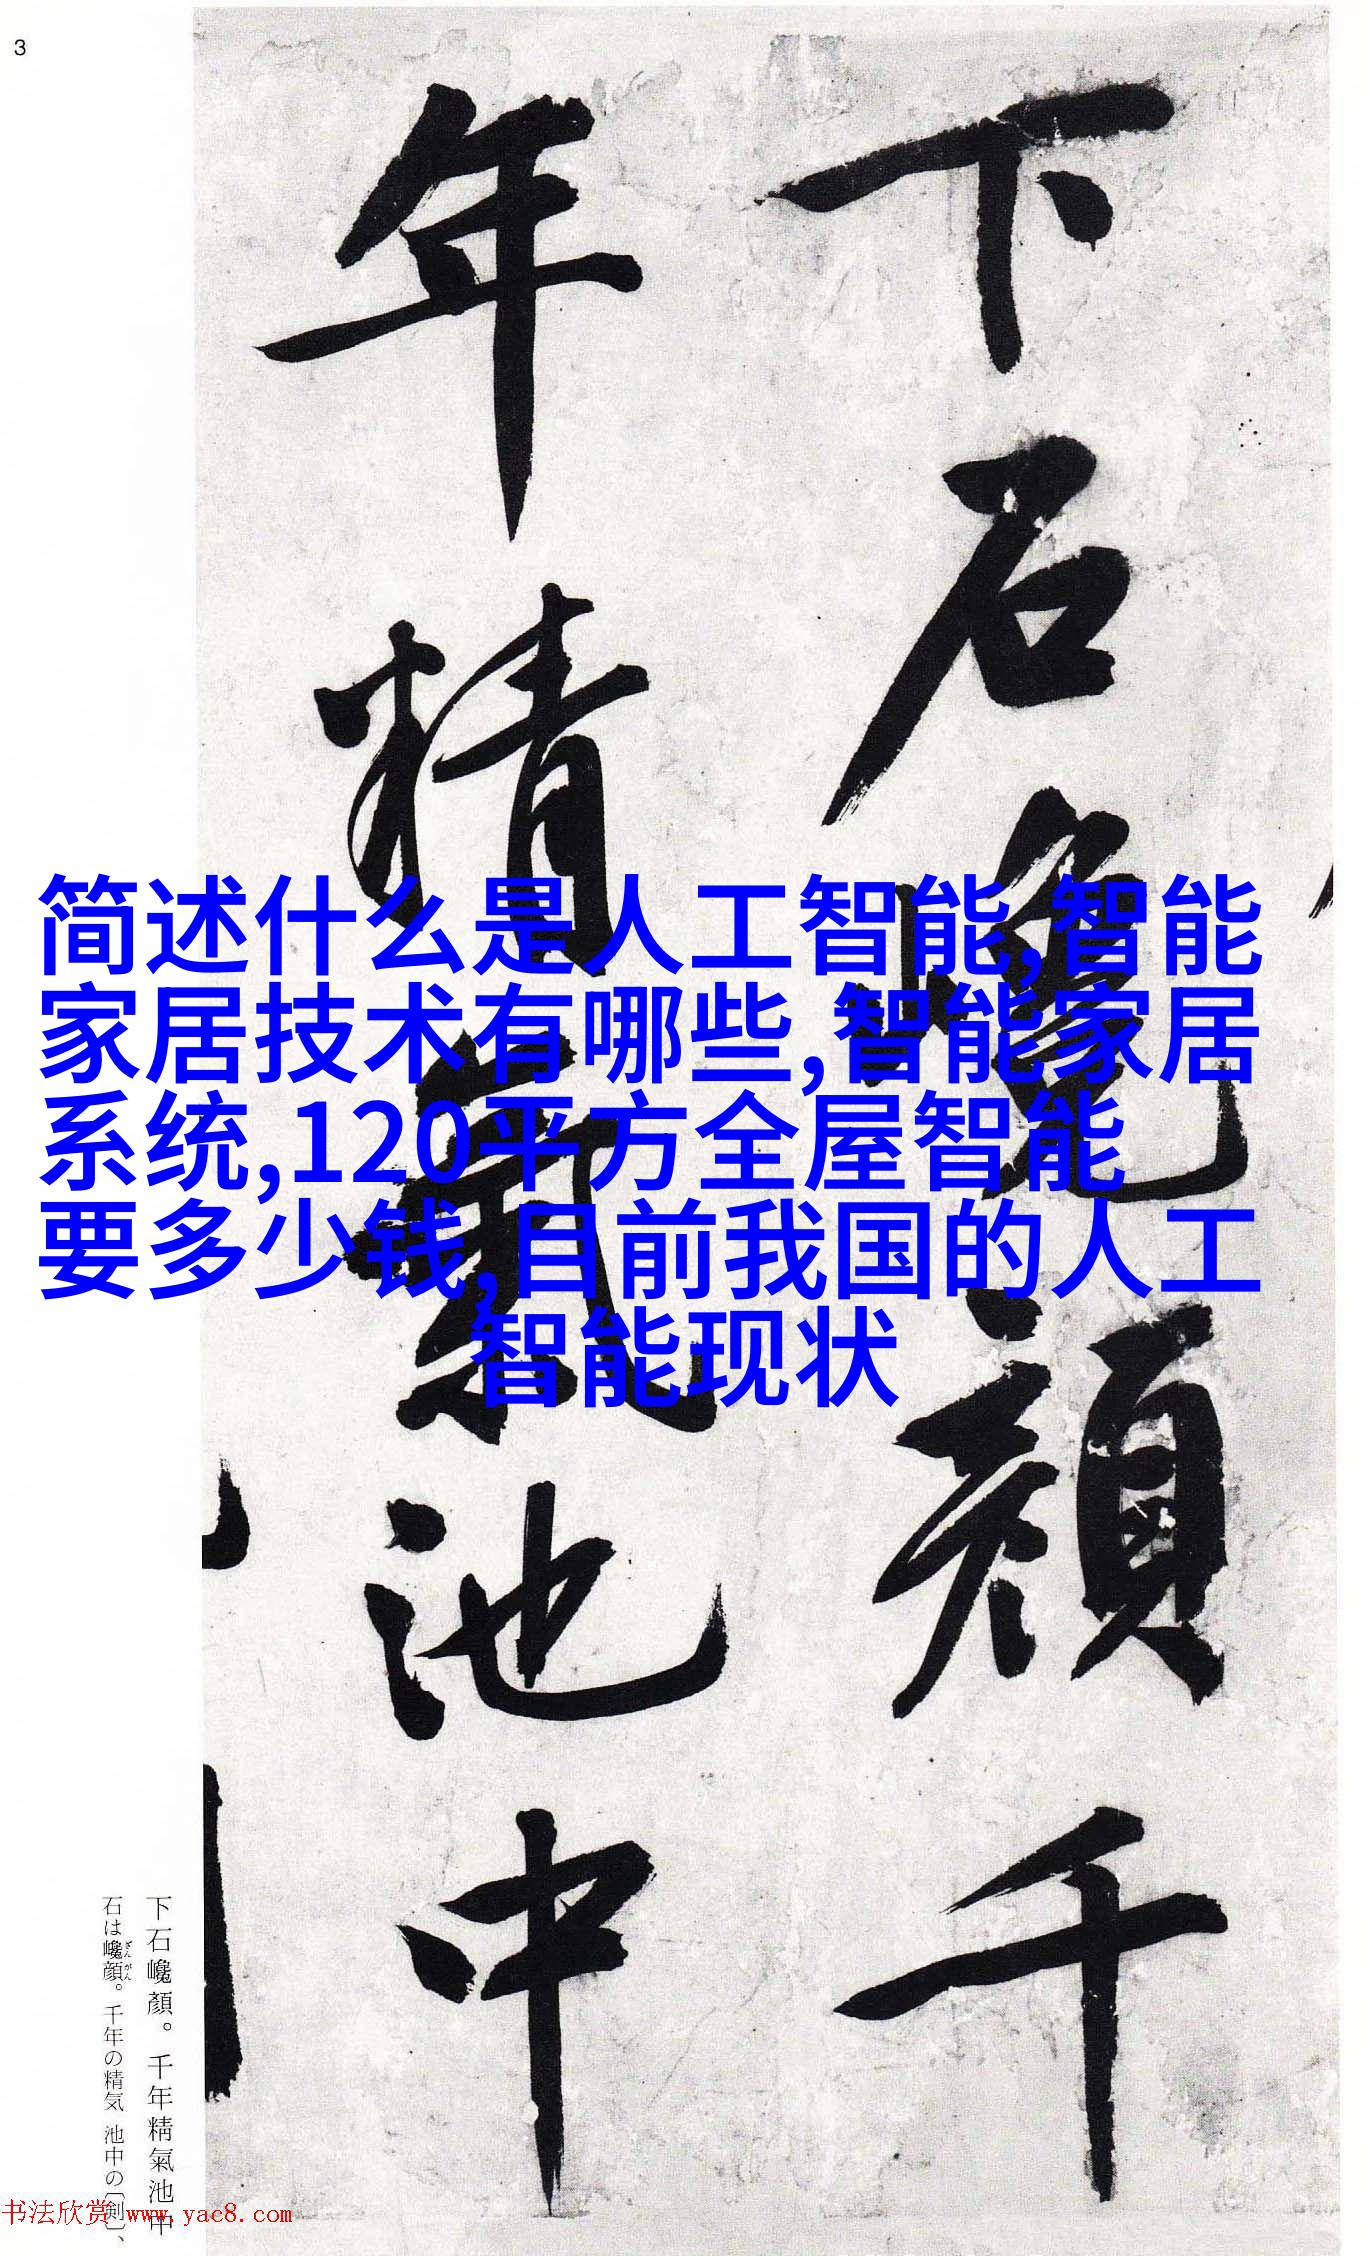 3
下石巉顏千
年精氣池中
简述什么是人工智能,智能
家居技术有哪些,智能家居
系统,120平方全屋智能
要多少钱,目前我国的人工
智能现状
下石巉顏。千年精氣池中
石は巉顔。千年の精気 池中の〔剣〕、
ざんがん
书法欣赏 www.yac8.com